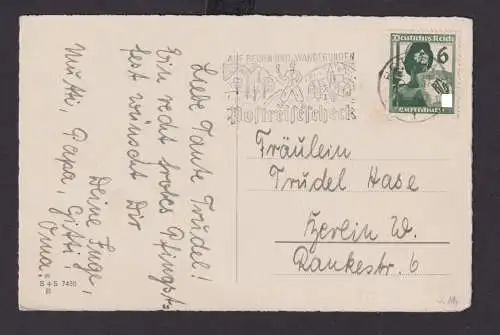 Liebe Tante Trudel!
Ein recht frohes Pfingst-
fest wünscht Dir
Deine Inge,
Mutti, Papa, Gitti,
Oma.
S + S 7450
AUF REISEN UND WANDERUNGEN
Postreisescheck
Deutsches Reich
6
Fräulein
Trudel Hase
Berlin W.
Rankestr. 6